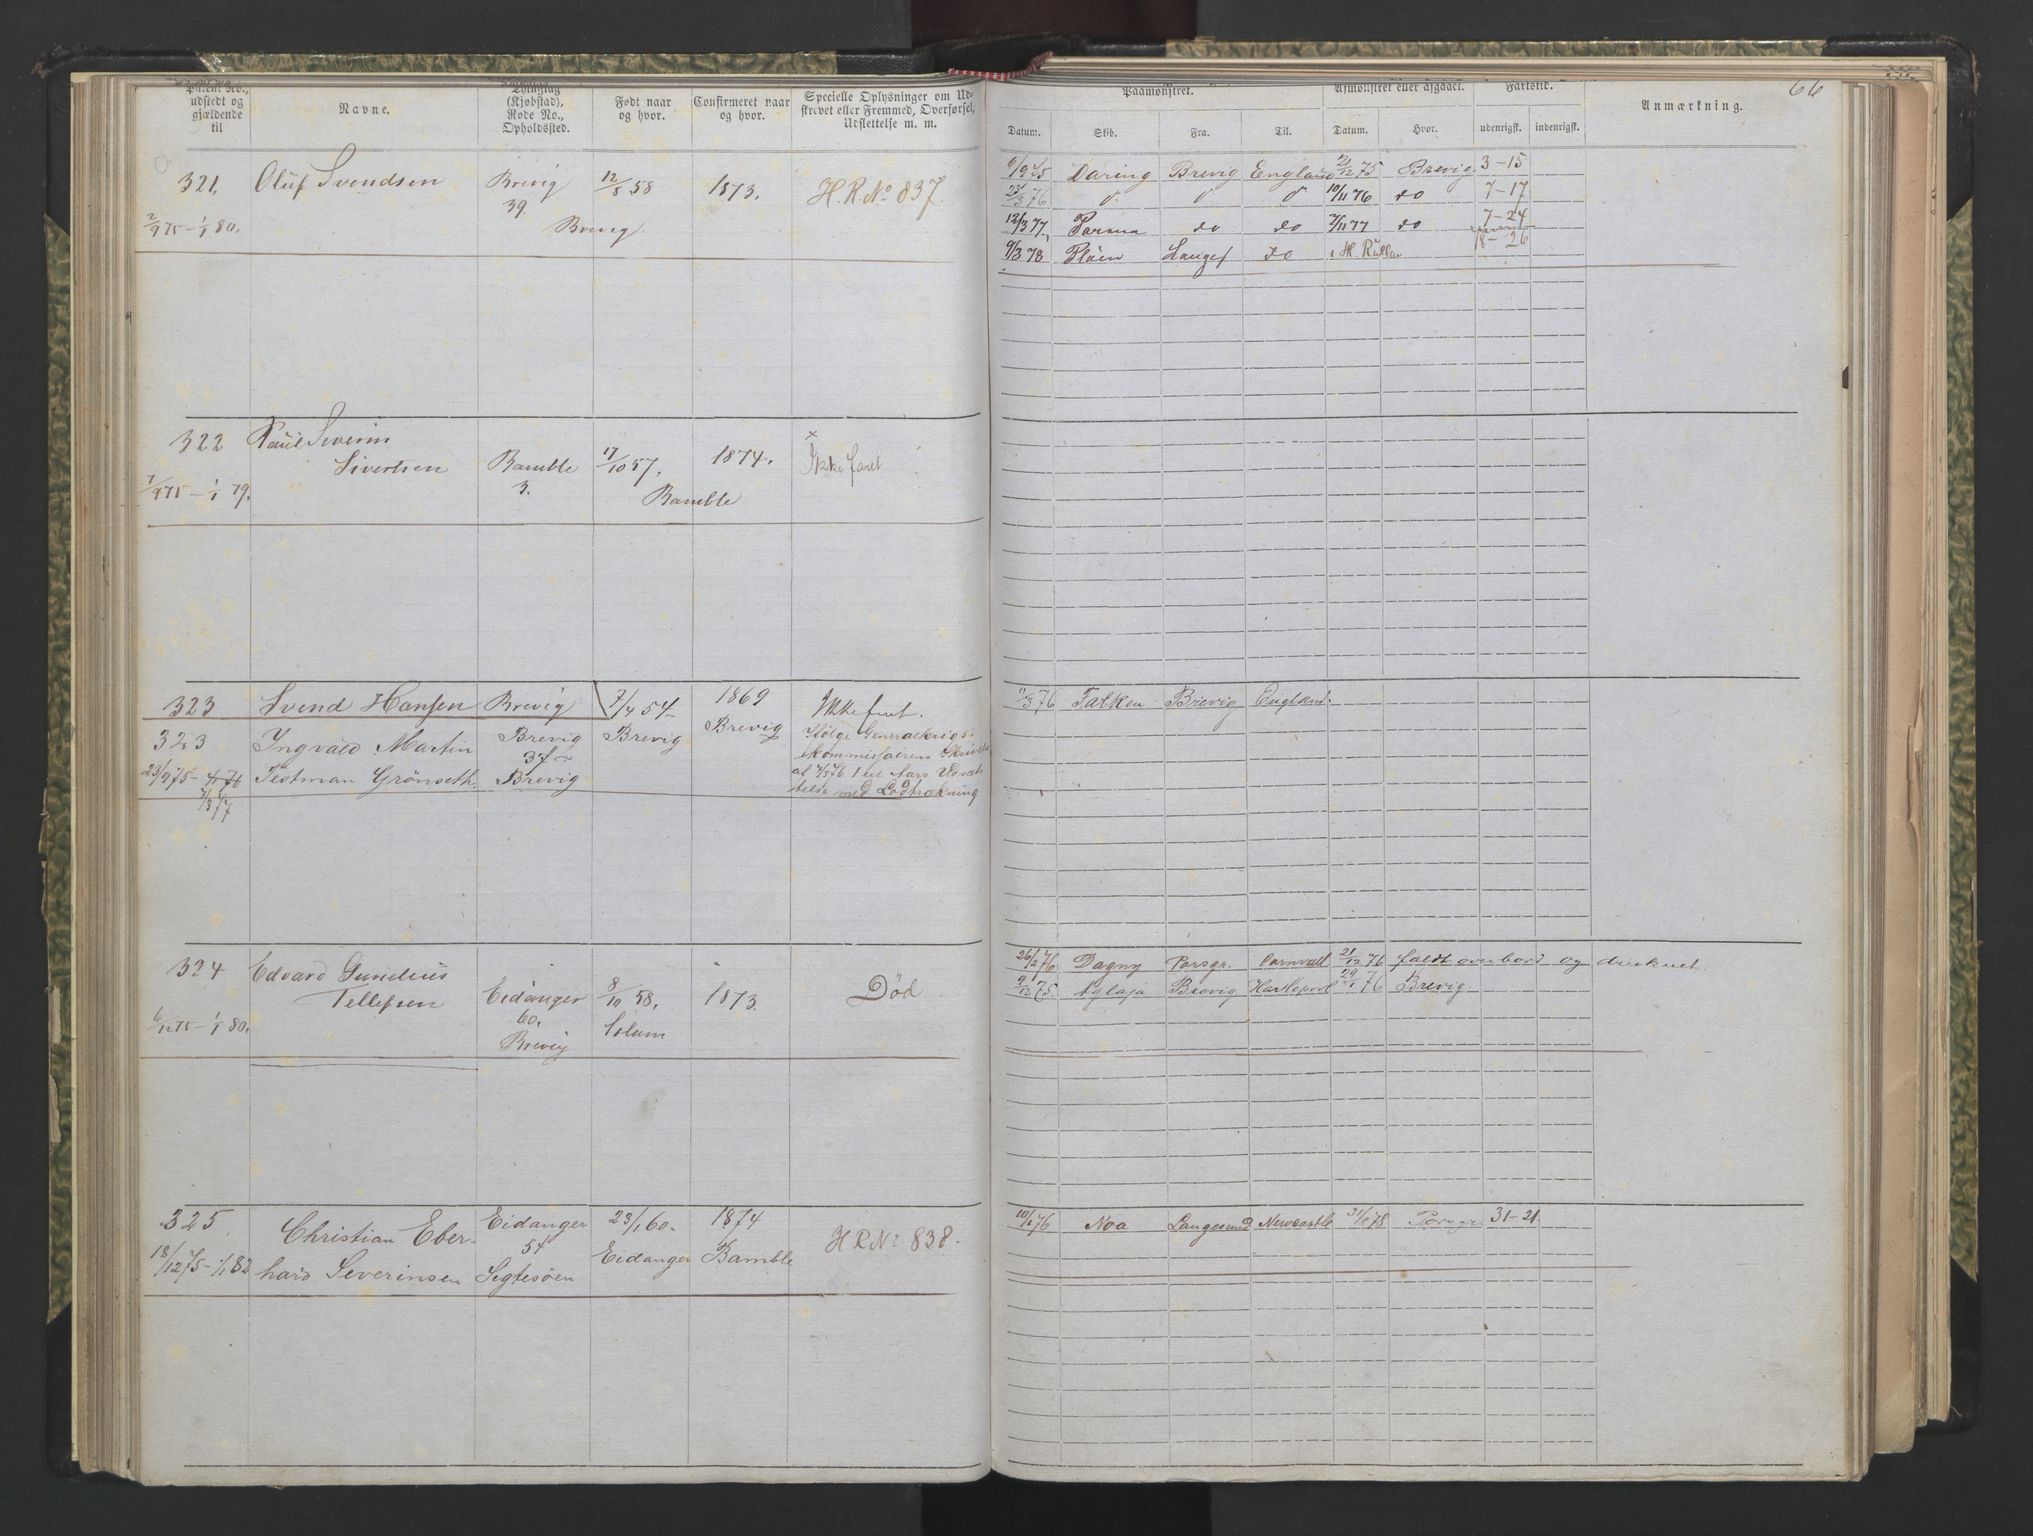 Patent No.,
udstedt og
gjældende
til
Navne.
(Kjøbstad),
Rode No.,
Opholdssted.
Født naar
og hvor.
Confirmeret naar
og hvor.
Specielle Oplysninger om Ud-
skrevet eller Fremmed, Overførsel,
Udslettelse m. m.
Paamønstret.
Afmønstret eller afgaaet.
Fartstid.
Anmærkning.
66
Datum.
Skib.
Fra.
Til.
Datum.
Hvor.
udenrigsk.
indenrigsk.
321. Oluf Svendsen Brevig 12/8 58 1873. H.R.No 837.
39.
2/9 75 – 1/1 80. Brevig
9/9 75 Daring Brevig England 21/12 75 Brevig 3-15
23/3 76 " " " 10/11 76 do 7-17
12/3 77. Parma do do 7/11 77 do 7-24
9/3 78 Fløien Langes do i H. Rullen 18-26
322 Paul Severin
Sivertsen Bamble 17/10 57. 1874. × Ikke faret
3.
7/9 75 – 1/1 79. Bamble
323 Svend Hansen Brevig 7/4 54 1869 Ikke faret.
323 Ingvald Martin Brevig Brevig Brevig Ifølge Generalkrigs-
37 kommissairens Skrivelse
23/9 75 – 4/1 76 Testman Grønseth. Brevig af 4/3 76 1 et Aars Udsæt-
1/3 77 telse med Lodtrækning
11/3 76 Falken Brevig England.
324 Edvard Gunelius
Tellefsen Eidanger 8/10 58. 1873. Død
60. Solum
6/12 75 – 1/1 80. Brevig
26/2 76 Dagny Porsgr. Cornwall 21/12 76 faldt overbord og druknet.
9/12 75. Aglaja Brevig Hartlepool 29/1 76 Brevig.
325 Christian Eber- Eidanger 23/1 60. 1874 H R No 838.
54
18/12 75 – 1/1 82 hard Severinsen Sigtesøen Eidanger Bamble
10/1 76 Noa Langesund Newcastle 31/8 78 Porsgr. 31-21